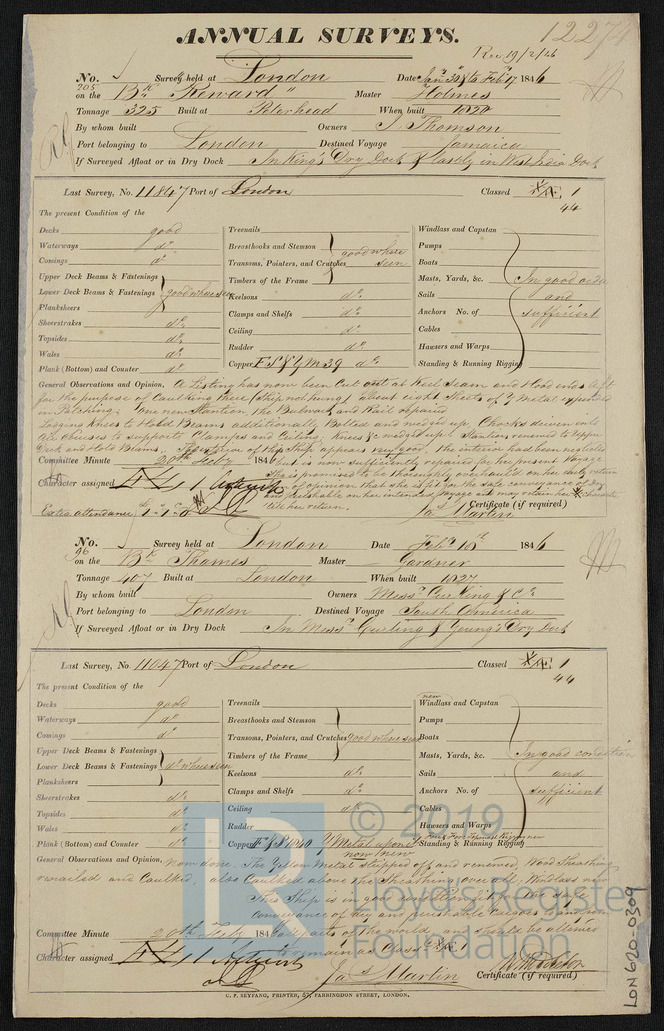 ANNUAL SURVEYS.
Rec 19/2/46
No. 205 Survey held at London Date Jany 30 & to Feby 17 1846
on the Bk "Reward" Master Holmes
Tonnage 325 Built at Peterhead When built 1820
By whom built Owners J Thomson
Port belonging to London Destined Voyage Jamaica
If Surveyed Afloat or in Dry Dock In King's Dry Dock & lastly in West India Dock
Last Survey, No. 11847 Port of London Classed Æ 1
44
The present Condition of the
Decks good
Waterways do
Comings do
Upper Deck Beams & Fastenings
Lower Deck Beams & Fastenings good where seen
Planksheers
Sheerstrakes do
Topsides do
Wales do
Plank (Bottom) and Counter do
Treenails
Breasthooks and Stemson good where
Transoms, Pointers, and Crutches seen
Timbers of the Frame
Keelsons do
Clamps and Shelfs do
Ceiling do
Rudder do
Copper F & Y M 39 do
Windlass and Capstan
Pumps
Boats
Masts, Yards, &c. In good order
Sails and
Anchors No. of sufficient
Cables
Hawsers and Warps
Standing & Running Rigging
General Observations and Opinion, A Listing has now been Cut out at Keel Seam and Hood ends aft
for the purpose of Caulking there (Ship not hung) about eight Sheets of Y Metal expended
in Patching. One new Stantion, the Bulwark and Rail repaired
Lodging Knees to Hold Beams additionally Bolted and wedged up, Chocks driven out
to support Clamps and Ceiling. Knees &c wedged up. Stantions renewed to Upper
Deck and Hold Beams. of this Ship appears very good, the interior had been neglected
but is now sufficiently repaired for her present Voyage
She is promised to be thoroughly overhauled on her early return
of opinion that she is fit for the safe conveyance of dry
and perishable on her intended voyage and may retain her
till her return.
Committee Minute 20th Feby 1846
Character assigned Æ 1
Extra attendance £1.1.0
Jas Martin
Certificate (if required)
No. 96 Survey held at London Date Feby 18th 1846
on the Bk Thames Master Gardner
Tonnage 407 Built at London When built 1827
By whom built Owners Messrs King & Co
Port belonging to London Destined Voyage South America
If Surveyed Afloat or in Dry Dock In Messrs Curling & Young's Dry Dock
Last Survey, No. 11047 Port of London Classed Æ 1
44
The present Condition of the
Decks good
Waterways do
Comings do
Upper Deck Beams & Fastenings
Lower Deck Beams & Fastenings do where seen
Planksheers
Sheerstrakes do
Topsides do
Wales do
Plank (Bottom) and Counter do
Treenails
Breasthooks and Stemson
Transoms, Pointers, and Crutches good where seen
Timbers of the Frame
Keelsons do
Clamps and Shelfs do
Ceiling do
Rudder
Copper Y Metal upon
now new
new
Windlass and Capstan
Pumps
Boats
Masts, Yards, &c. In good condition
Sails and
Anchors No. of sufficient
Cables
Hawsers and Warps
Standing & Running Rigging
General Observations and Opinion, now done. The Yellow Metal stripped off and renewed, Wood Sheathing
renailed and Caulked, also Caulked above the Sheathing over all, Windlass new
This Ship is in good condition, fit for the safe
conveyance of dry and perishable Cargoes to and from
all parts of the world, and should be allowed
to remain as Classed Æ 1
Committee Minute 20th Feby 1846
Character assigned Æ 1
Jas Martin
Certificate (if required)
C. F. SEYFANG, PRINTER, 57, FARRINGDON STREET, LONDON.
© 2019
Lloyd's Register
Foundation
LON620-0309